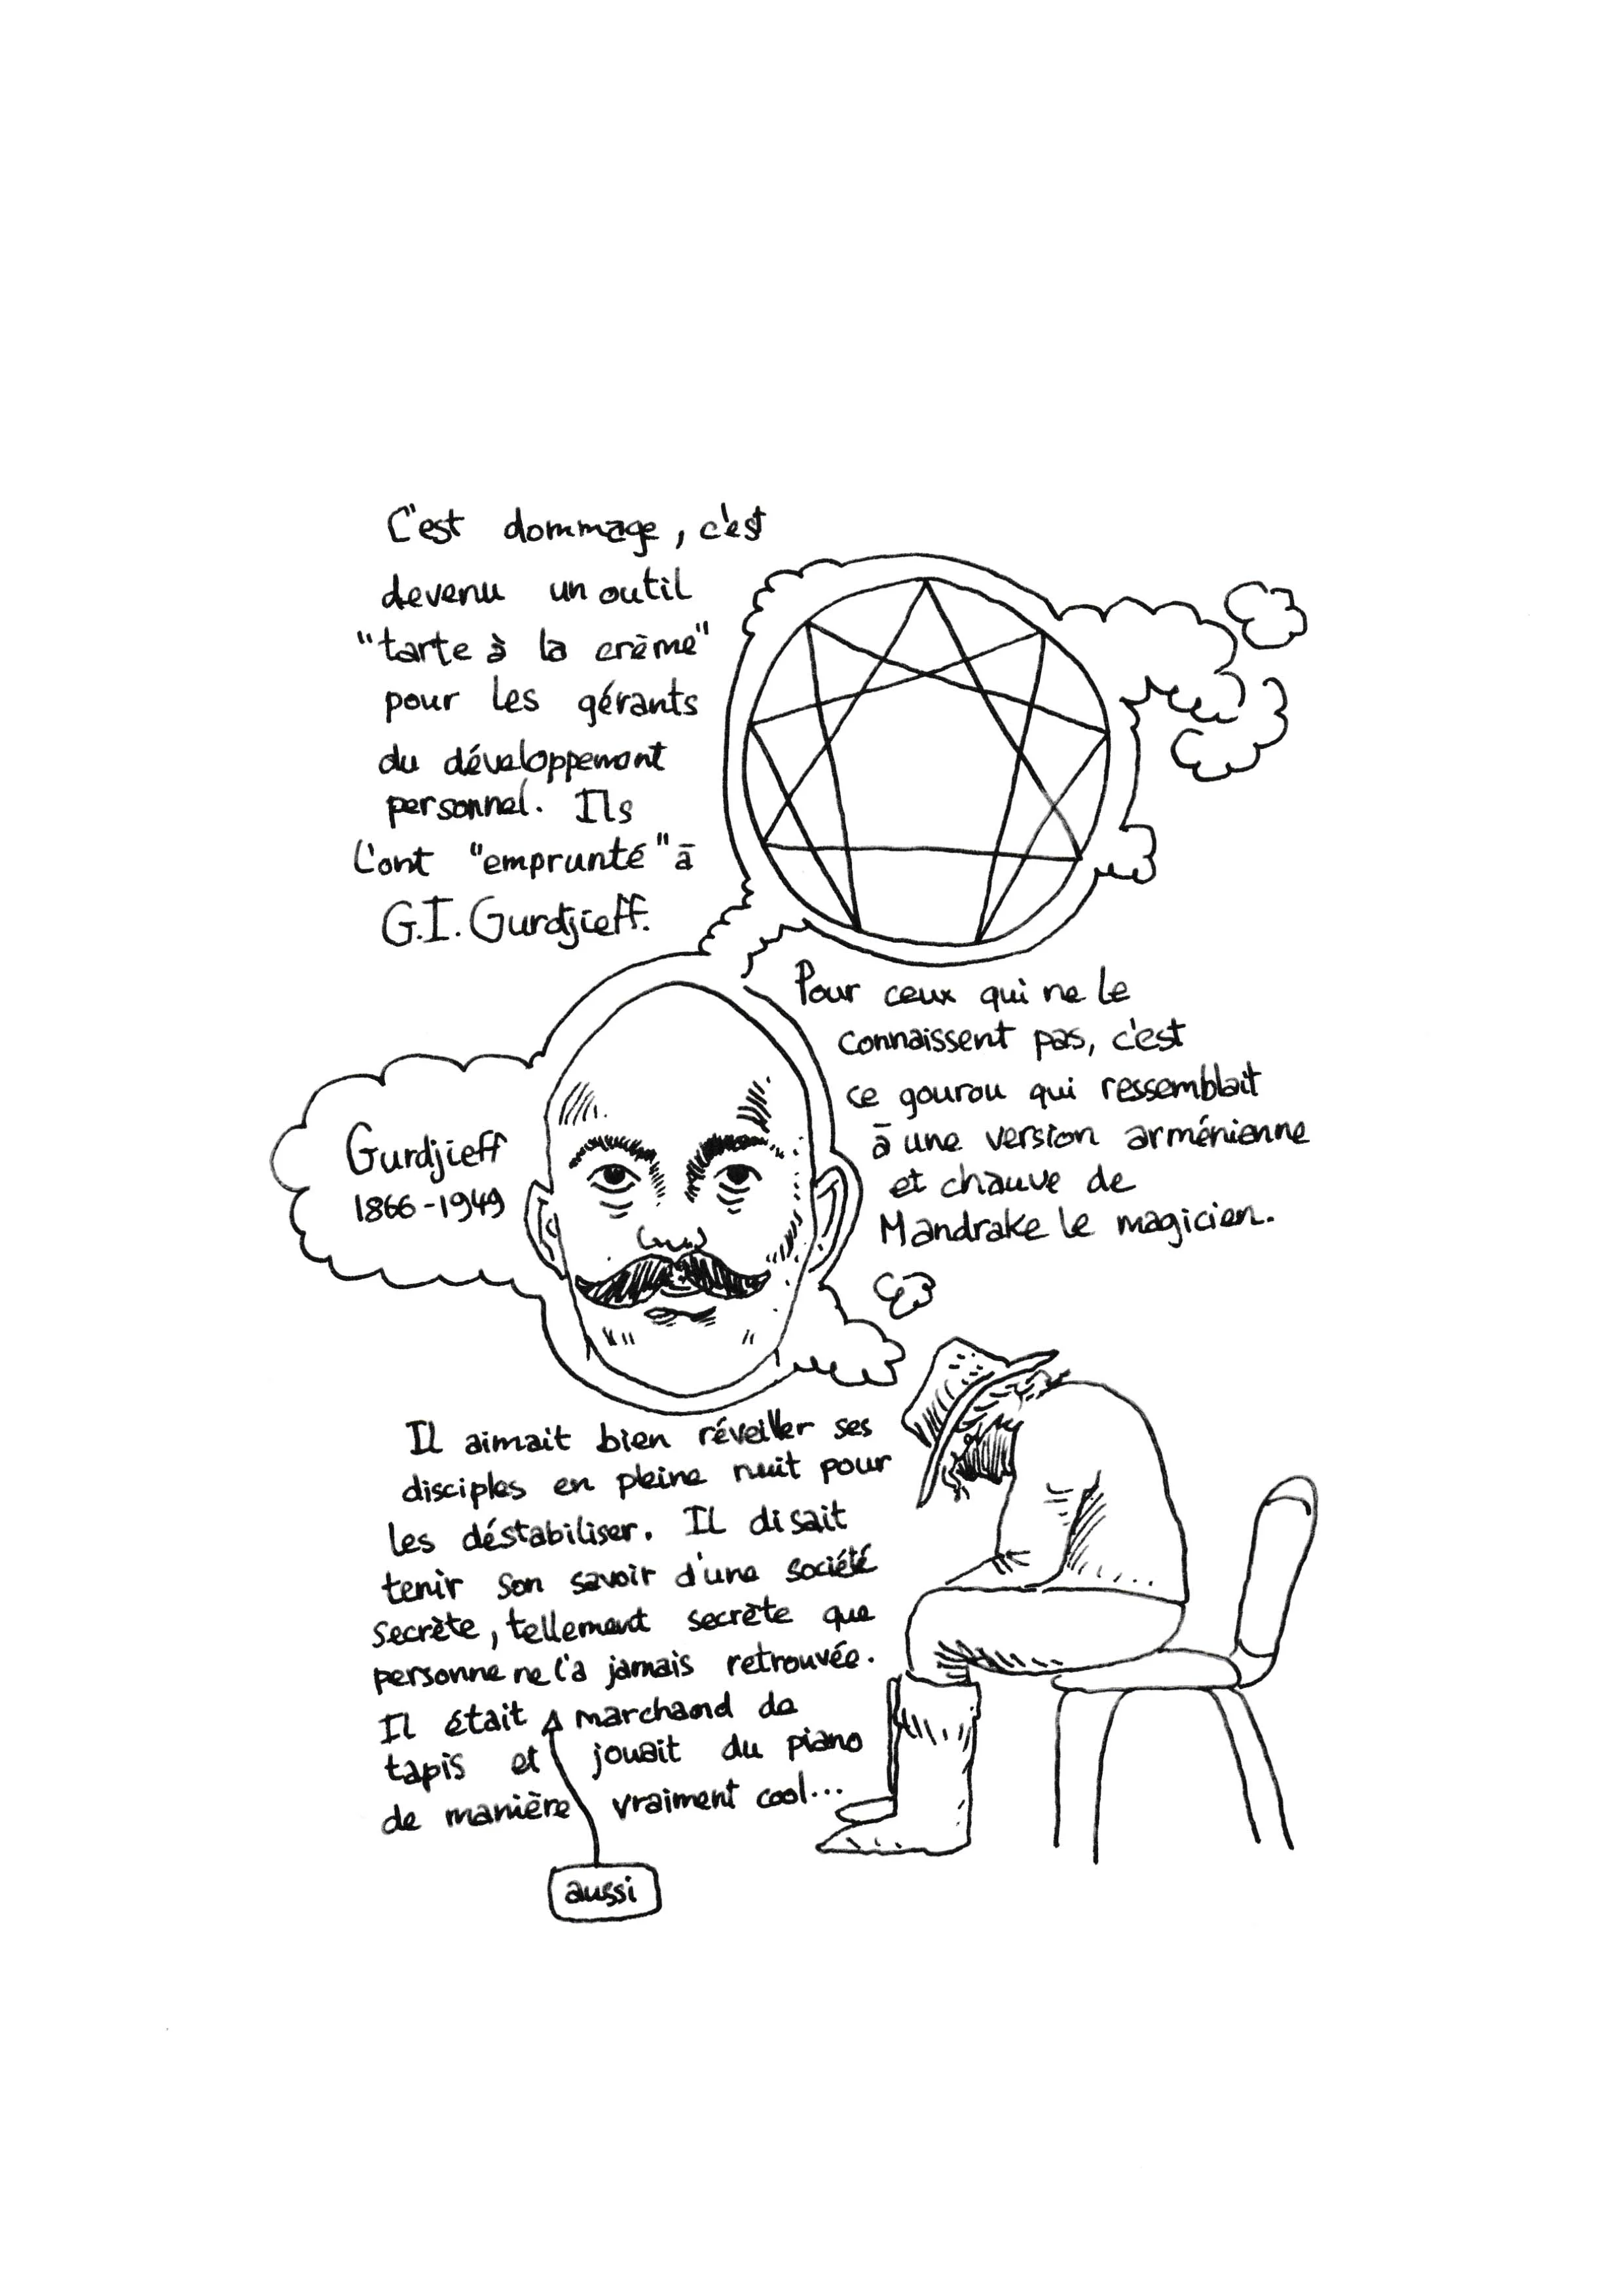 C'est dommage, c'est
devenu un outil
"tarte à la crème"
pour les gérants
du développement
personnel. Ils
l'ont "emprunté" à
G.I. Gurdjieff.
Pour ceux qui ne le
connaissent pas, c'est
ce gourou qui ressemblait
à une version arménienne
et chauve de
Mandrake le magicien.
Gurdjieff
1866-1949
Il aimait bien réveiller ses
disciples en pleine nuit pour
les déstabiliser. Il disait
tenir son savoir d'une société
secrète, tellement secrète que
personne ne l'a jamais retrouvée.
Il était marchand de
tapis et jouait du piano
de manière vraiment cool...
aussi